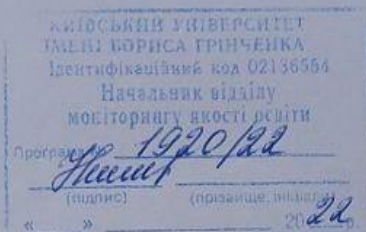 КИЇВСЬКИЙ УНІВЕРСИТЕТ
ІМЕНІ БОРИСА ГРІНЧЕНКА
Ідентифікаційний код 02136554
Начальник відділу
моніторингу якості освіти
Програма № 1920/22
(підпис) (прізвище, ініціали)
« » 2022 р.